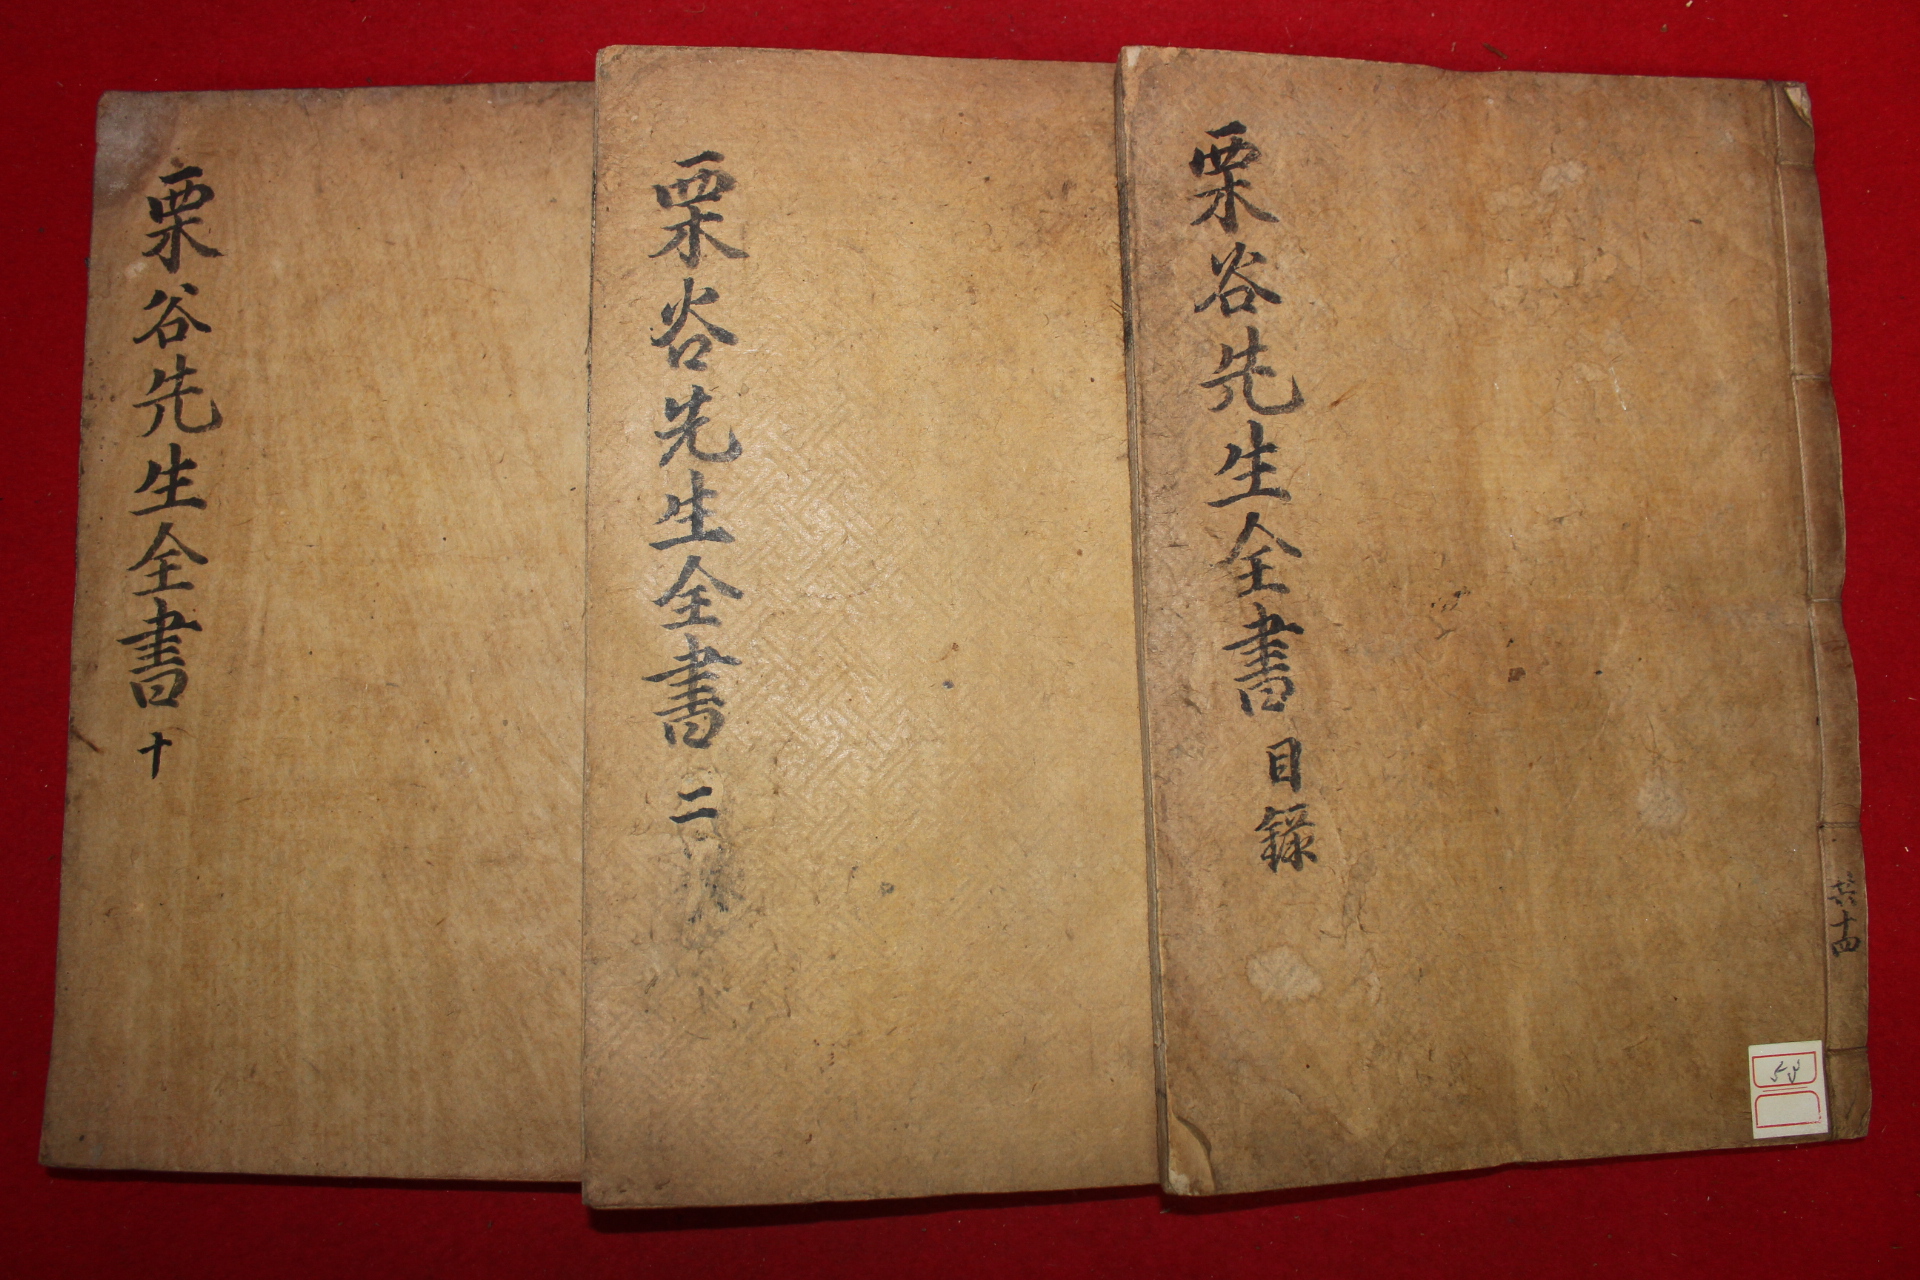 栗谷先生全書 目錄
共十四
53
栗谷先生全書 二
栗谷先生全書 十